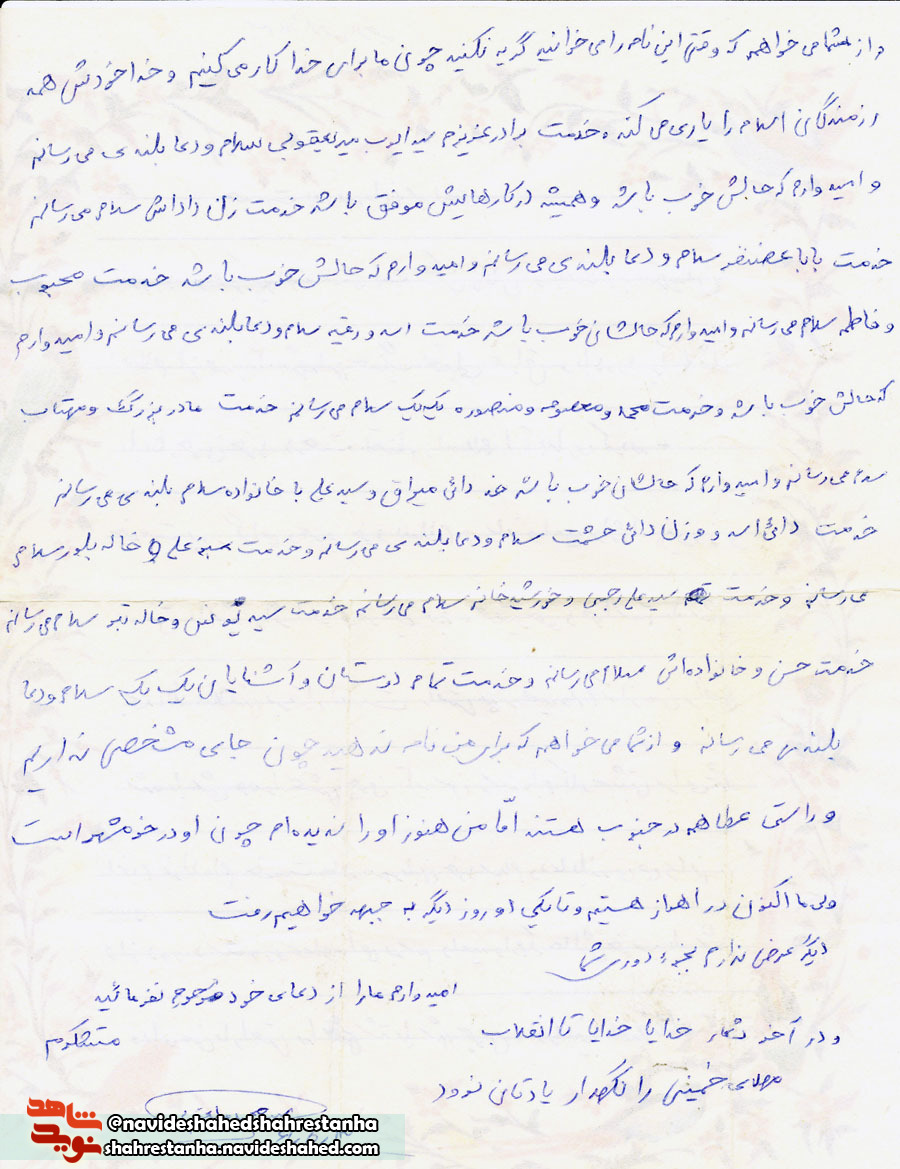 و از شما می خواهم که وقتی این نامه را می خوانید گریه نکنید چون ما برای خدا کار می کنیم و خدا خودش همه
رزمندگان اسلام را یاری می کند، خدمت برادر عزیزم سید ایوب میریعقوبی سلام و دعا بلندی می رسانم
و امید وارم که حالش خوب باشد و همیشه در کارهایش موفق باشد خدمت زن داداش سلام می رسانم
خدمت بابا غضنفر سلام و دعا بلندی می رسانم و امید وارم که حالش خوب باشد خدمت محبوب
و فاطمه سلام می رسانم و امید وارم که حالشان خوب باشد خدمت اسد و رقیه سلام و دعا بلندی می رسانم و امید وارم
که حالش خوب باشد و خدمت محمد و معصومه و منصوره یک یک سلام می رسانم خدمت مادر بزرگ و مهتاب
سلام می رسانم و امید وارم که حالشان خوب باشد دائی و سید علی با خانواده سلام بلندی می رسانم
خدمت دائی اسد و زن دائی حشمت سلام و دعا بلندی می رسانم و خدمت علی و خاله بلور سلام
می رسانم و خدمت سید علی رجبی و خورشید خانم سلام می رسانم خدمت سید یونس و خاله سلام می رسانم
خدمت حسن و خانواده اش سلام می رسانم و خدمت تمام دوستان و آشنایان یک یک سلام و دعا
بلندی می رسانم و از شما می خواهم که برای من نامه ندهید چون جای مشخصی نداریم
و راستی عطا هم در جنوب هستند امّا من هنوز او را ندیده ام چون او در خرمشهر است
ولی ما اکنون در اهواز هستیم و تا یکی او روز دیگر به جبهه خواهیم رفت
دیگر عرض ندارم بجزء دوری شما
امید وارم ما را از دعای خود فرمائید
و در آخر شعار خدایا خدایا تا انقلاب
متشکرم
مهدی خمینی را نگهدار یادتان نرود
شاهد نوید
@navideshahedshahrestanha
shahrestanha.navideshahed.com